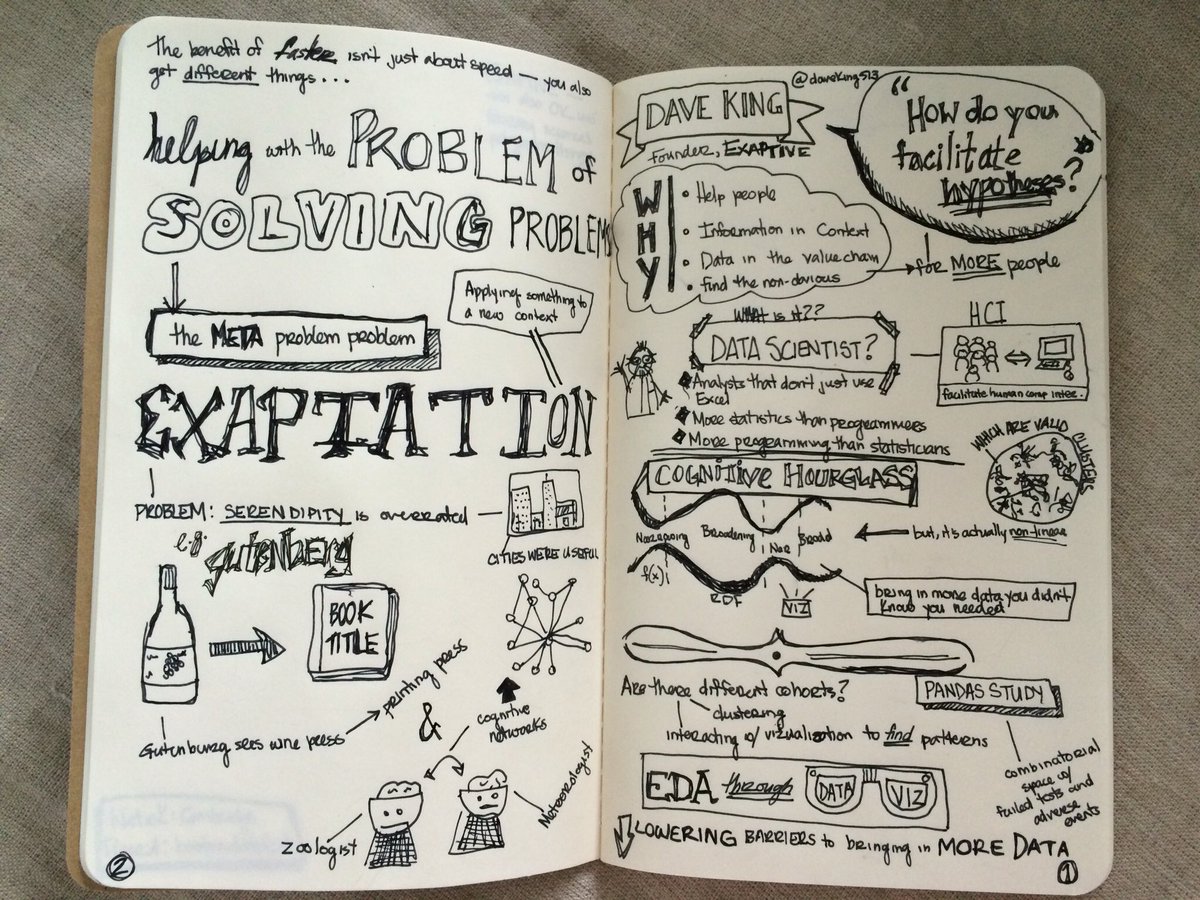 The benefit of faster isn't just about speed — you also
get different things...
helping with the PROBLEM of
SOLVING PROBLEMS
the META problem problem
Applying something to
a new context
EXAPTATION
PROBLEM: SERENDIPITY is overrated
CITIES WERE USEFUL
e.g. GUTENBERG
BOOK
TITLE
Gutenburg sees wine press
printing press
&
cognitive
networks
zoologist
Meteorologist
2
@daveking513
DAVE KING
founder, EXAPTIVE
"How do you
facilitate
hypotheses?
for MORE people
WHY
• Help people
• Information in Context
• Data in the value chain
• find the non-obvious
WHAT is it??
DATA SCIENTIST?
HCI
facilitate human comp inter.
Analysts that don't just use
Excel
More statistics than programmers
More programming than statisticians
WHICH ARE VALID CLUSTERS
COGNITIVE HOURGLASS
Narrowing
Broadening
Nar
Broad
but, it's actually non-linear
f(x)
RDF
VIZ
bring in more data you didn't
know you needed
Are there different cohorts?
clustering
interacting w/ vizualization to find patterns
PANDAS STUDY
combinatorial
space w/
failed tests and
adverse
events
EDA through DATA VIZ
LOWERING BARRIERS to bringing in MORE DATA
1